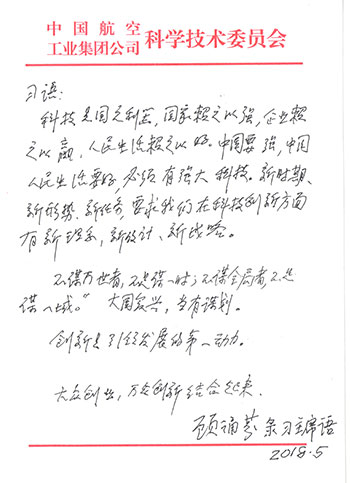 中国航空
工业集团公司 科学技术委员会
习语:
科技是国之利器,国家赖之以强,企业赖
之以赢,人民生活赖之以好。中国要强,中国
人民生活要好,必须有强大科技。新时期、
新形势、新任务,要求我们在科技创新方面
有新理念、新设计、新战略。
不谋万世者,不足谋一时;不谋全局者,不足
谋一域。”大国复兴,当有谋划。
创新是引领发展的第一动力。
大众创业,万众创新结合起来.
顾诵芬 录习主席语
2018.5